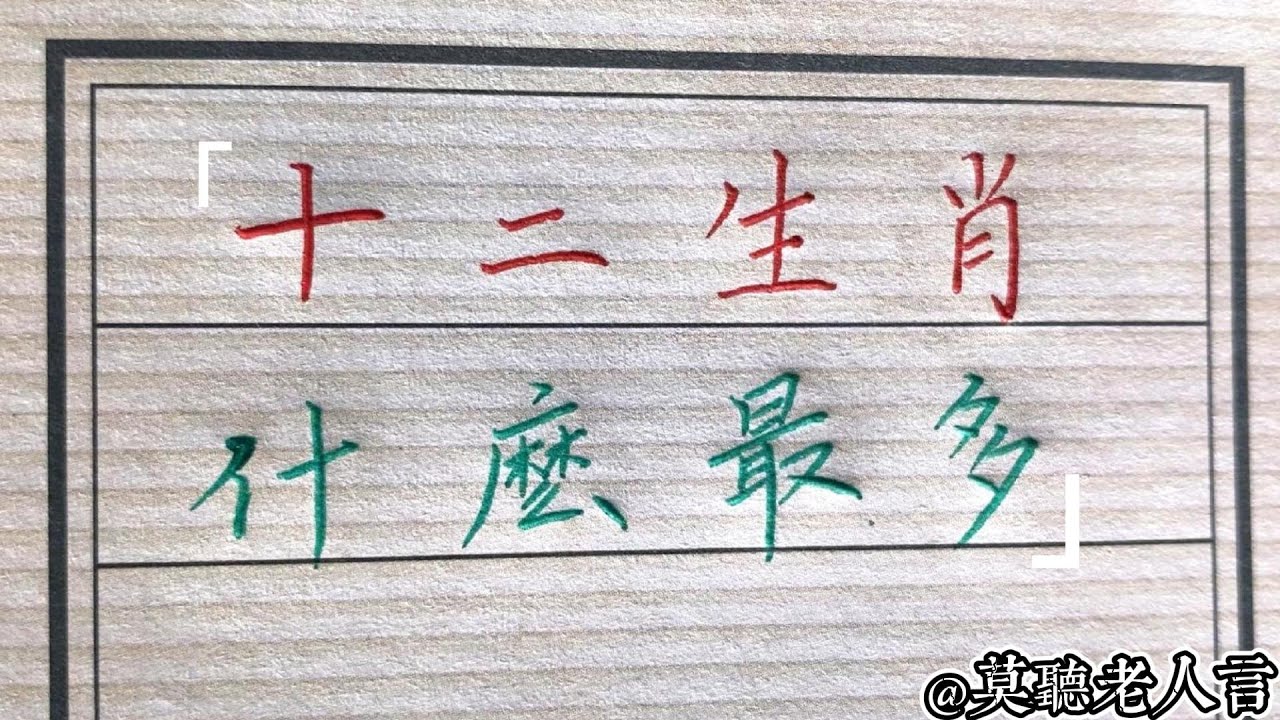 「十二生肖
什麼最多」
@莫聽老人言